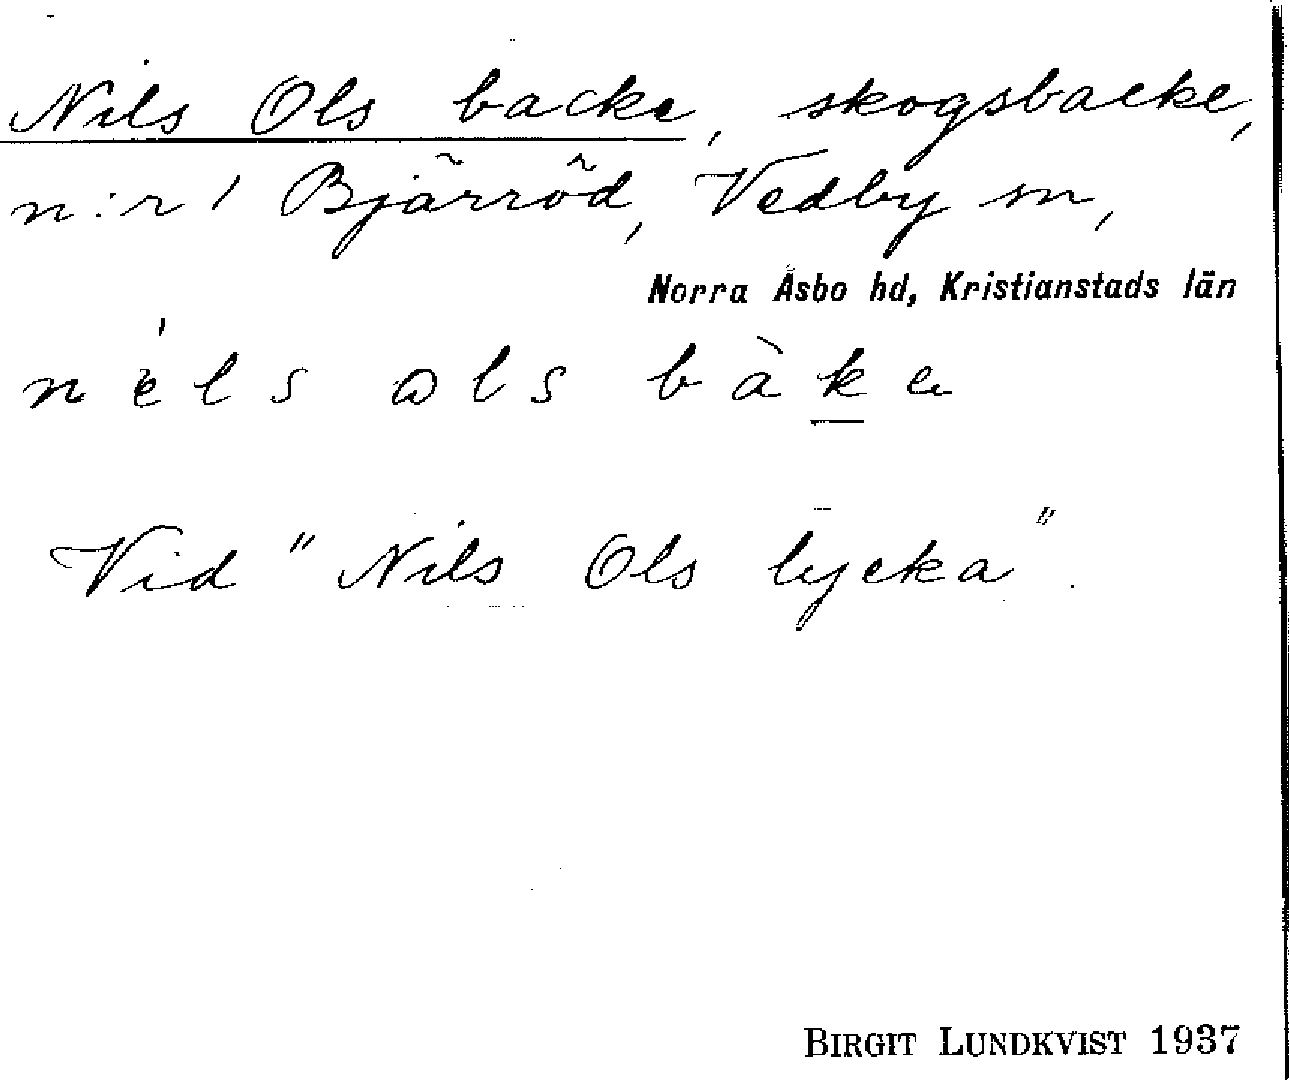 Nils Ols backe, skogsbacke,
n:r 1 Bjärröd, Vedby sn,
Norra Åsbo hd, Kristianstads län
néls ɷls bàke
Vid "Nils Ols lycka".
BIRGIT LUNDKVIST 1937